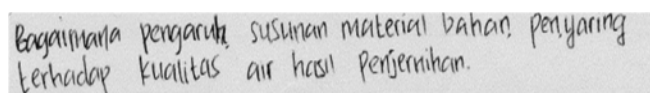 Bagaimana pengaruh susunan material bahan penyaring
terhadap kualitas air hasil penjernihan.